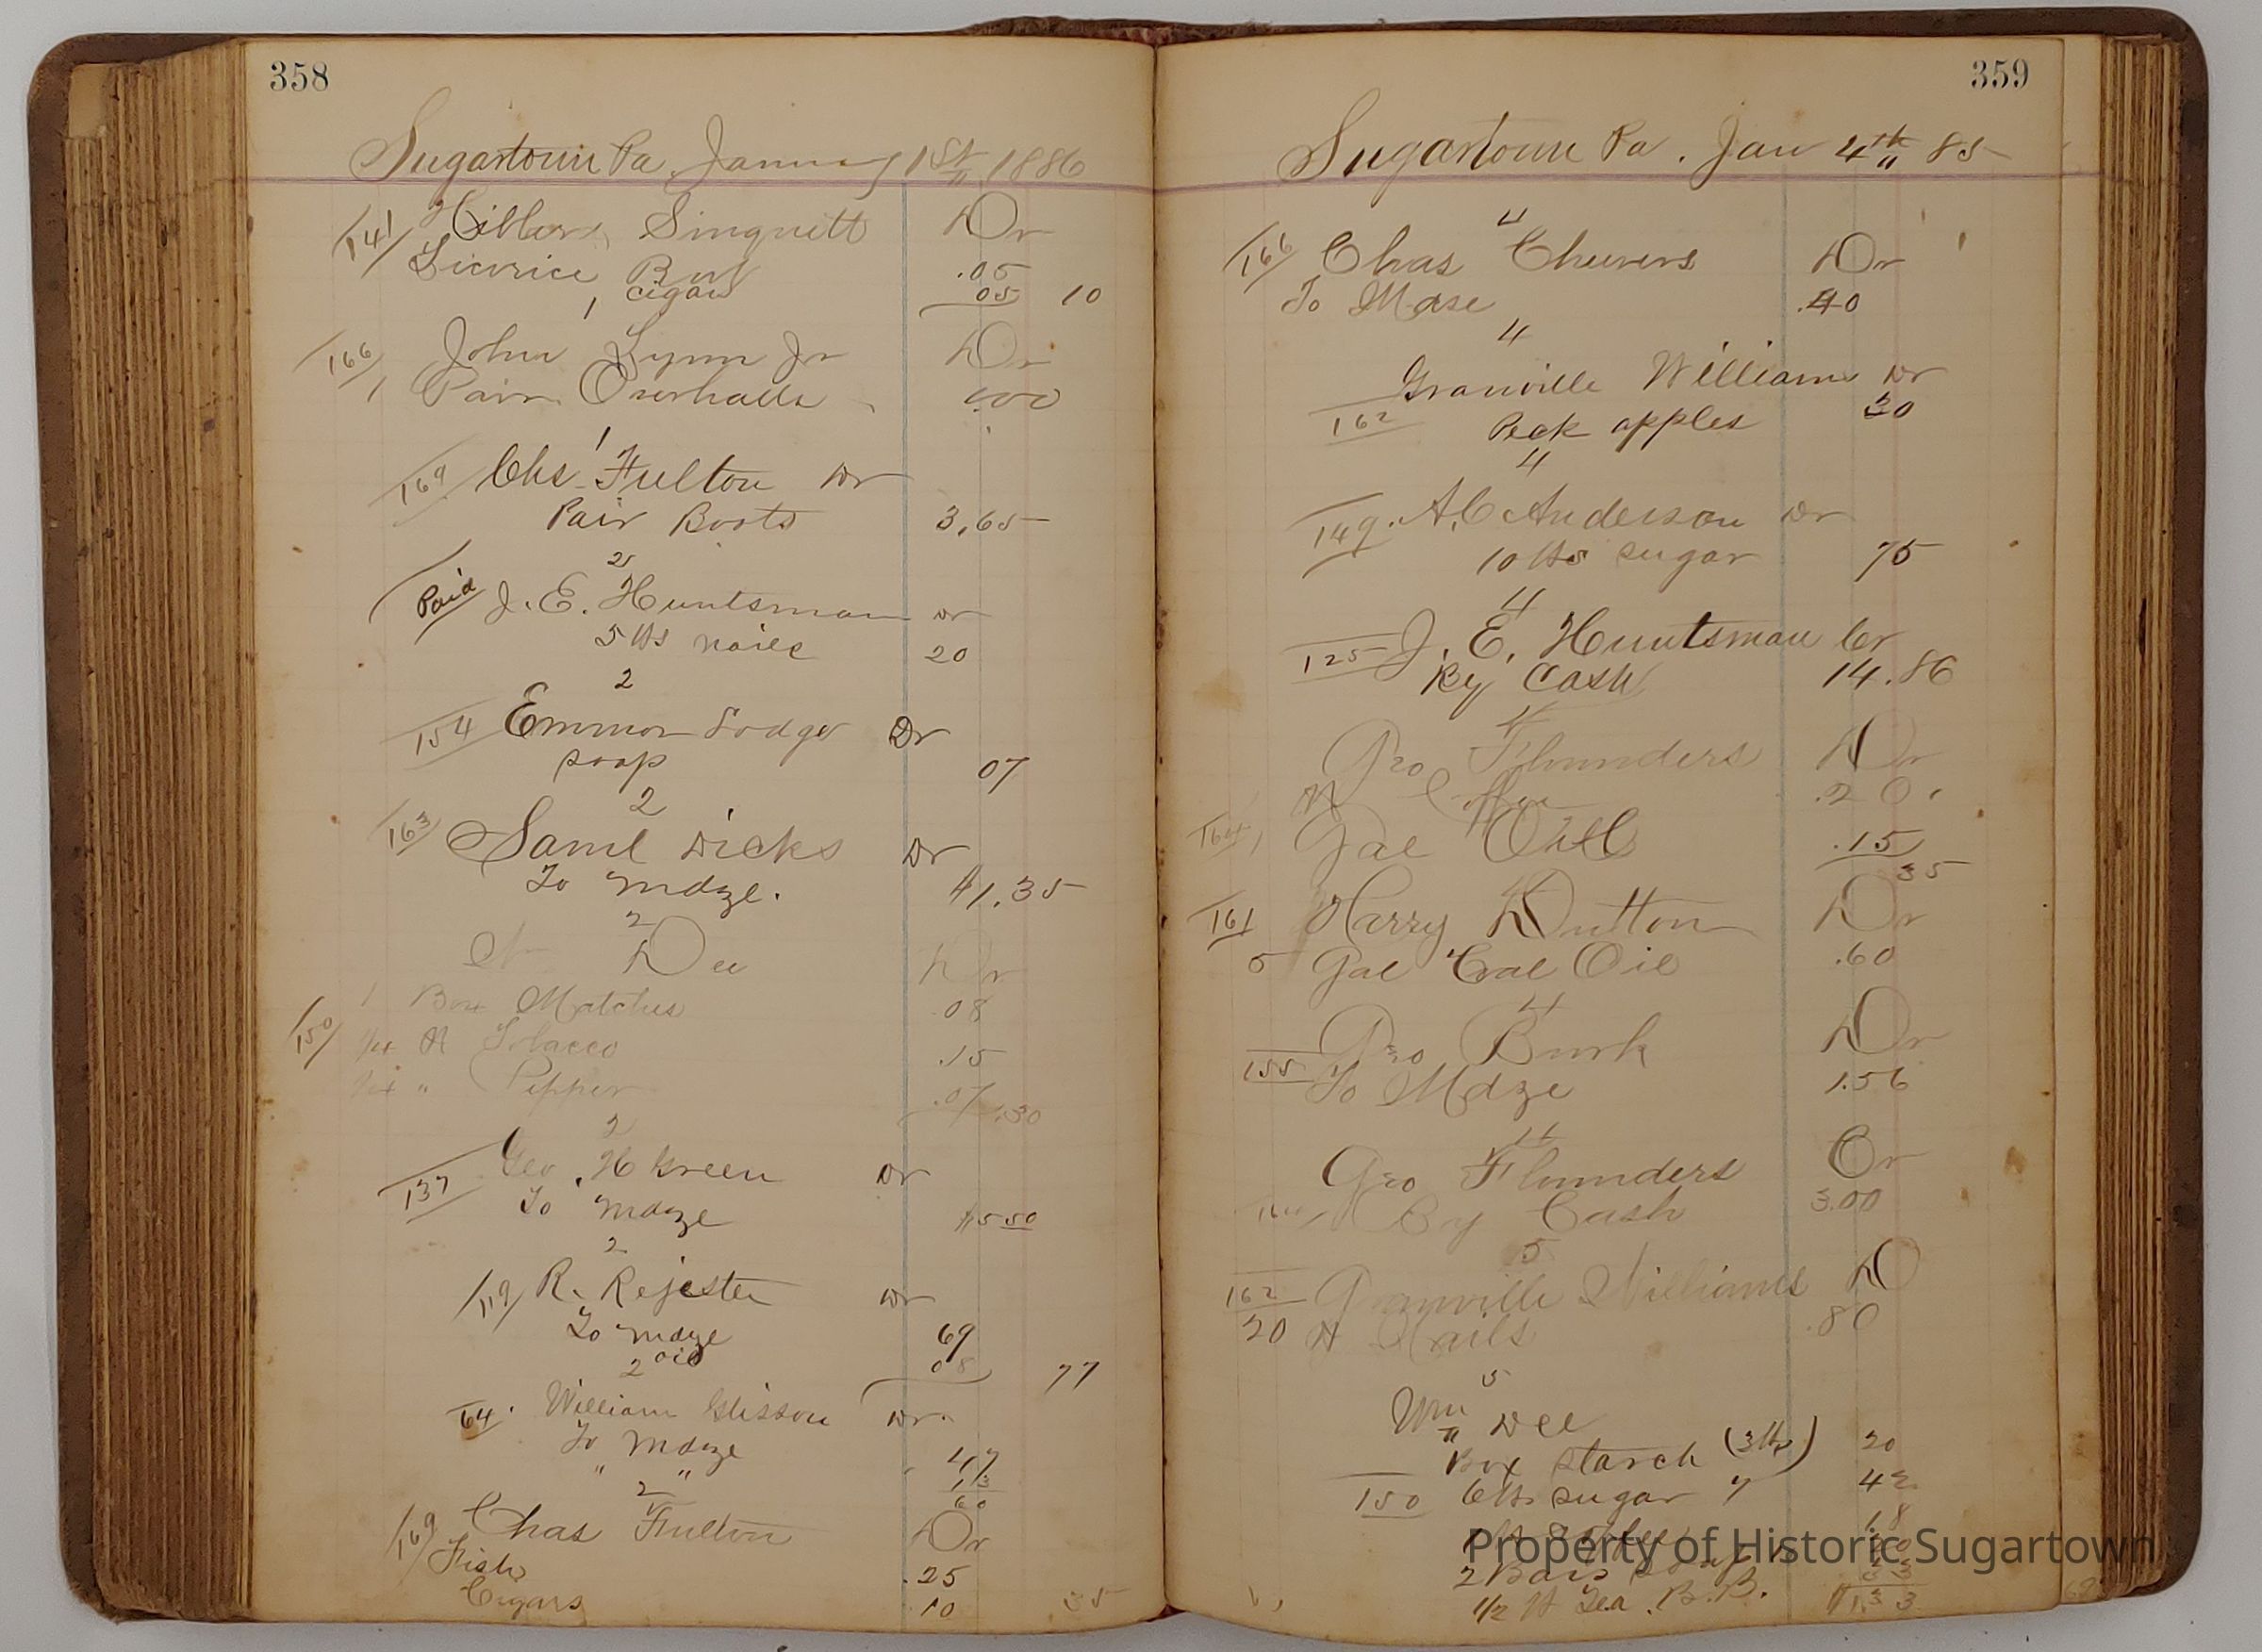 358
Sugartown Pa January 1st 1886
141 Singuett Dr
Licorice .05
1 Cigar 05 10
166 John Lynn Jr Dr
1 Pair Overhalls 1.00
1
169 Chs Fulton Dr
Pair Boots 3,65
2
Paid J. E. Huntsman Dr
5 lbs nails 20
2
154 Emmor Dr
soap 07
2
163 Saml Dicks Dr
To Mdze. $1.35
2
Dee Dr
1 Box Matches .08
150 Tobacco .15
" Pepper .07 .30
2
137 Geo. H Green Dr
To Mdze $5 50
2
119 R. Rejester Dr
To Mdze 69
oil 08 77
2
64. William Dr.
To Mdze 47
" " 13
60
2
169 Chas Fulton Dr
Fish .25
Cigars 10 35
359
Sugartown Pa. Jan 4th 85
4
166 Chas Cheevers Dr
To Mdse .40
4
Granville Williams Dr
162 Peck apples 30
4
149. A. C Anderson Dr
10 lbs sugar 75
4
125 J. E. Huntsman Cr
By Cash 14.86
4
Geo Flounders Dr
Coffee .20
164 Gal Oil .15
35
4
161 Harry Dutton Dr
5 Gal Coal Oil .60
4
Geo Burk Dr
155 To Mdze 1.56
4
Geo Flounders Cr
164 By Cash 3.00
5
162 Granville Williams D
20 lb Nails .80
5
Wm Dee
Box starch (3lbs) 20
150 6 lbs sugar 7 42
18
2 Bars soap
1/2 lb Tea B.B.
$1.33
Property of Historic Sugartown